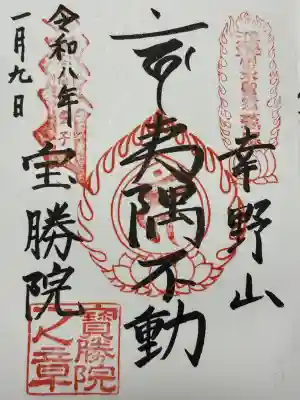 幸野山
夷隅不動
宝勝院
令和八年
一月九日
寶勝院
之章